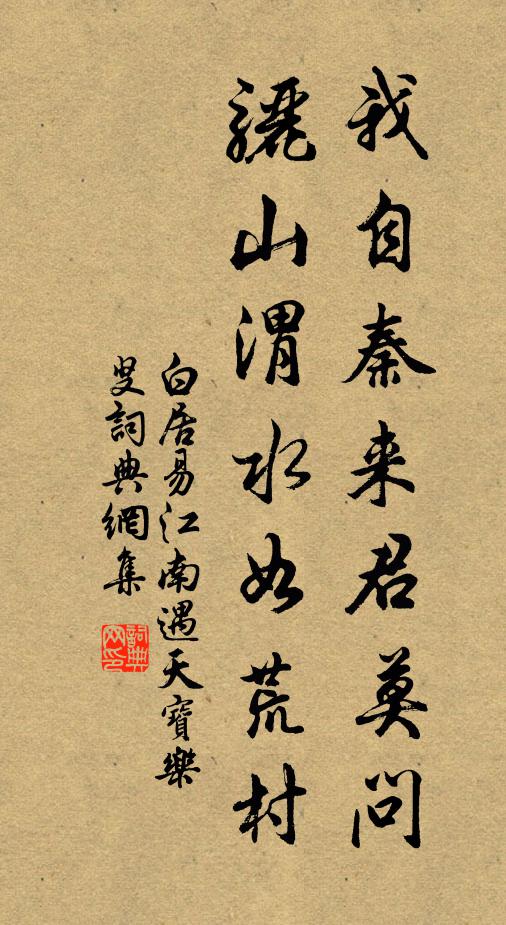 我自秦来君莫問
驪山渭水如荒村
白居易江南遇天寶樂
叟詞典網集
詞典网印